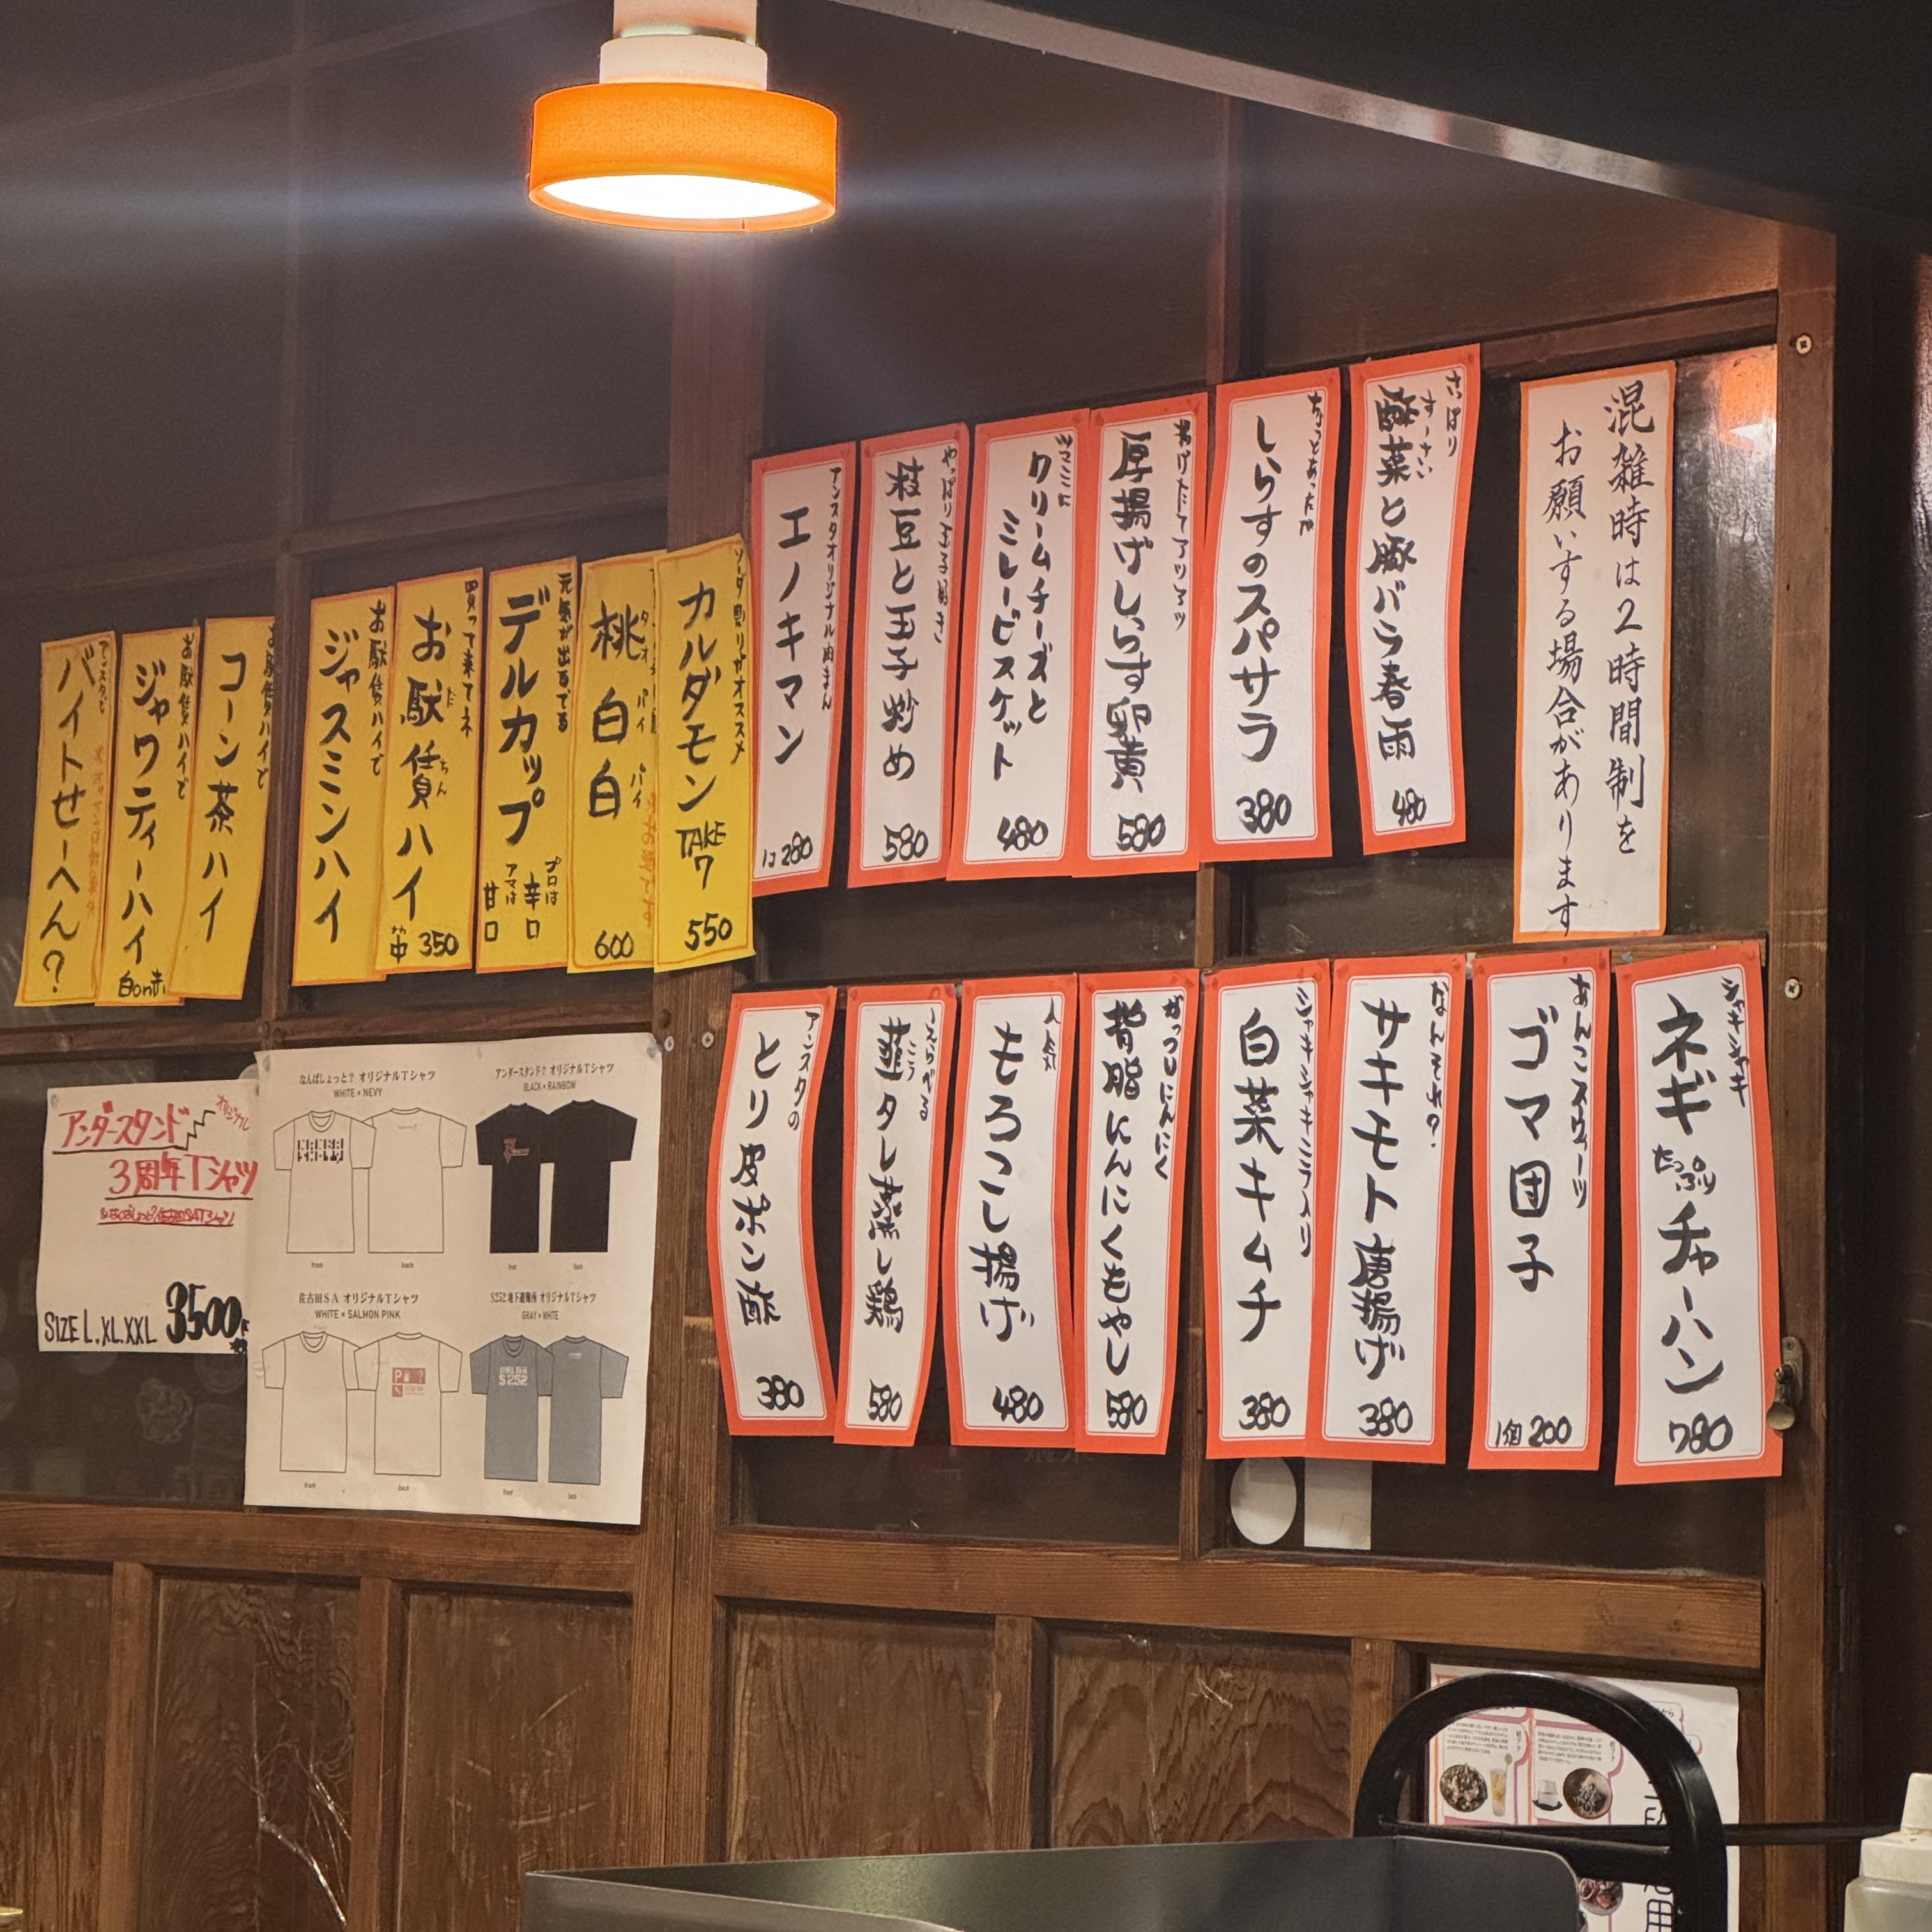 混雑時は2時間制を
お願いする場合があります
さっぱり
すーさい
酸菜と豚バラ春雨
480
ちょっとあったか
しらすのスパサラ
380
揚げたてアツアツ
厚揚げしらす卵黄
580
ツマミに
クリームチーズと
ミレービスケット
480
やっぱり玉子好き
枝豆と玉子炒め
580
アンスタオリジナル肉まん
エノキマン
1コ 280
ソーダ割りがオススメ
カルダモン
TAKE
7
550
桃白白
タオ パイ パイ
600
元気が出るでる
デルカップ
プロは
辛口
アマは
甘口
買って来てネ
お駄賃ハイ
だ ちん
中 350
お駄賃ハイで
ジャスミンハイ
お駄賃ハイで
コーン茶ハイ
お駄賃ハイで
ジャワティーハイ
白or赤
アンスタで
バイトせーへん?
シャキシャキ
ネギたっぷりチャーハン
780
あんこスウィーツ
ゴマ団子
1個 200
なんそれ?
サキモト唐揚げ
380
シャキシャキニラ入り
白菜キムチ
380
がっつしにんにく
背脂にんにくもやし
580
人気
もろこし揚げ
480
タレ蒸し鶏
580
アンスタの
とり皮ポン酢
380
オリジナル
アンダースタンド
3周年Tシャツ
SIZE L.XL.XXL
3500
なんばしょっと? オリジナルTシャツ
WHITE × NEVY
front
back
アンダースタンド!? オリジナルTシャツ
BLACK × RAINBOW
front
back
佐古田SA オリジナルTシャツ
WHITE × SALMON PINK
front
back
S252 地下避難所 オリジナルTシャツ
GRAY × WHITE
S 252
front
back